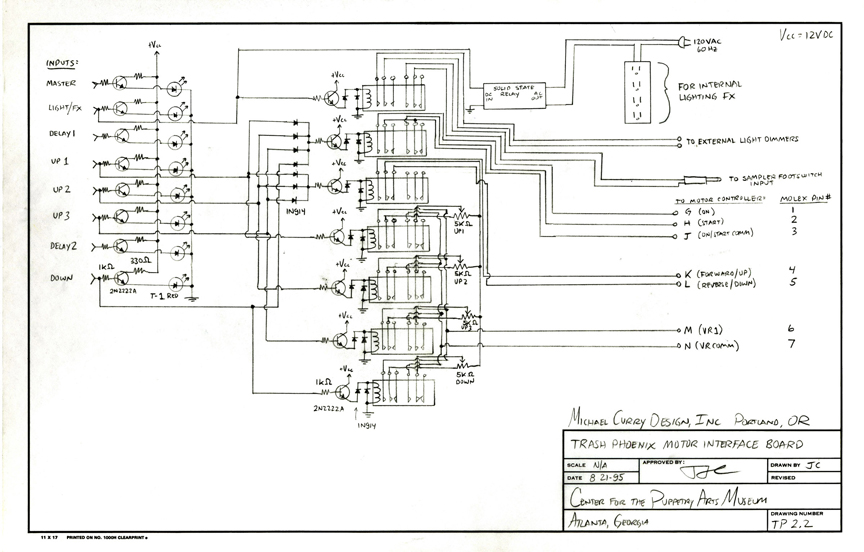 Vcc = 12VDC
INPUTS:
MASTER
LIGHT/FX
DELAY 1
UP 1
UP 2
UP 3
DELAY 2
DOWN
+Vcc
330Ω
1KΩ
2N2222A
T-1 RED
1N914
+Vcc
+Vcc
+Vcc
+Vcc
+Vcc
+Vcc
+Vcc
1KΩ
2N2222A
1N914
5KΩ
UP1
5KΩ
UP2
5KΩ
UP3
5KΩ
DOWN
SOLID STATE
DC RELAY AC
IN OUT
120VAC
60 HZ
FOR INTERNAL
LIGHTING FX
TO EXTERNAL LIGHT DIMMERS
TO SAMPLER FOOTSWITCH
INPUT
TO MOTOR CONTROLLER: MOLEX PIN#
G (ON) 1
H (START) 2
J (ON/START COMM) 3
K (FORWARD/UP) 4
L (REVERSE/DOWN) 5
M (VR1) 6
N (VR COMM) 7
MICHAEL CURRY DESIGN, INC PORTLAND, OR
TRASH PHOENIX MOTOR INTERFACE BOARD
SCALE N/A
APPROVED BY:
DRAWN BY JC
DATE 8 21-95
REVISED
CENTER FOR THE PUPPETRY ARTS MUSEUM
ATLANTA, GEORGIA
DRAWING NUMBER
TP 2.2
11 X 17 PRINTED ON NO. 1000H CLEARPRINT